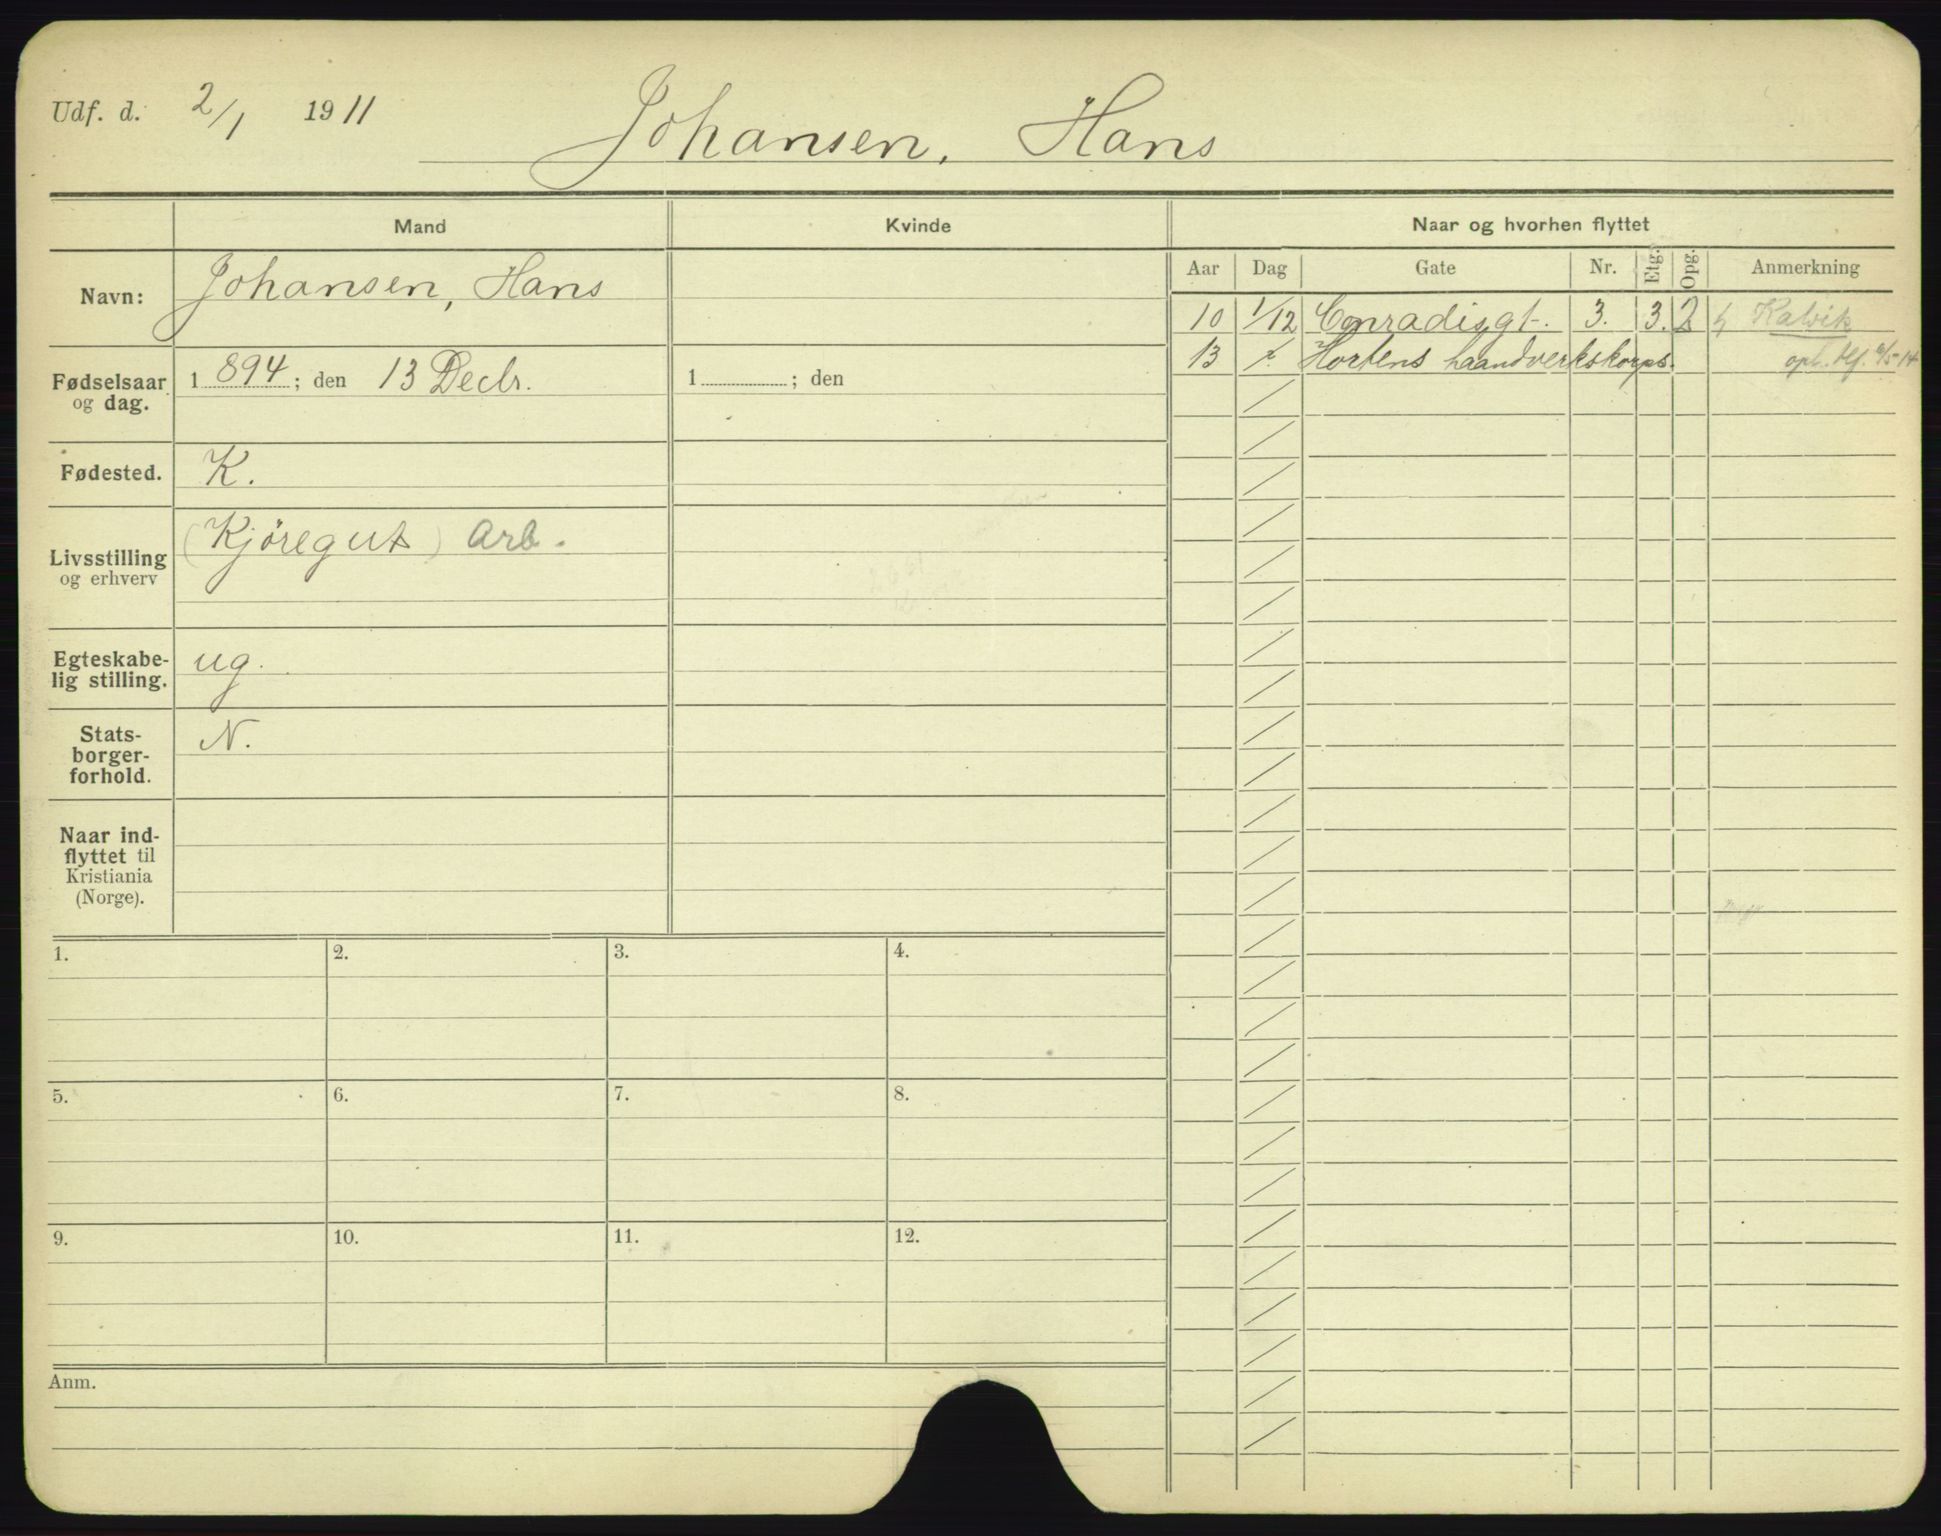 Udf. d. 2/1 1911 Johansen, Hans
Mand Kvinde Naar og hvorhen flyttet
Aar Dag Gate Nr. Etg. Opg. Anmerkning
Navn: Johansen, Hans
10 1/12 Conradisgt. 3. 3. 2 Kalvik
13 Hortens haandverkskorps. 14
Fødselsaar og dag. 1894; den 13 Decbr. 1 ; den
Fødested. K.
Livsstilling og erhverv (Kjöregut) Arb.
Egteskabe-
lig stilling. ug.
Stats-
borger-
forhold. N.
Naar ind-
flyttet til
Kristiania
(Norge).
1. 2. 3. 4.
5. 6. 7. 8.
9. 10. 11. 12.
Anm.